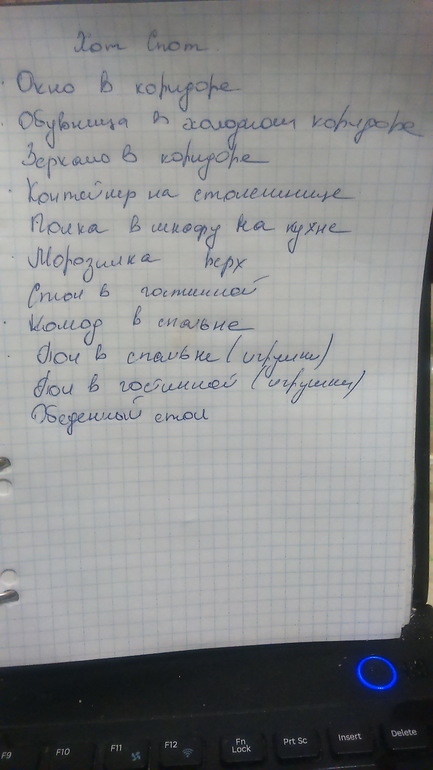 Хот Спот
Окно в коридоре
Обувница в холодном коридоре
Зеркало в коридоре
Контейнер на столешнице
Полка в шкафу на кухне
Морозилка верх
Стол в гостинной
Комод в спальне
Пол в спальне (игрушки)
Пол в гостинной (игрушки)
Обеденный стол
F9 F10 F11 F12 Fn Lock Prt Sc Insert Delete